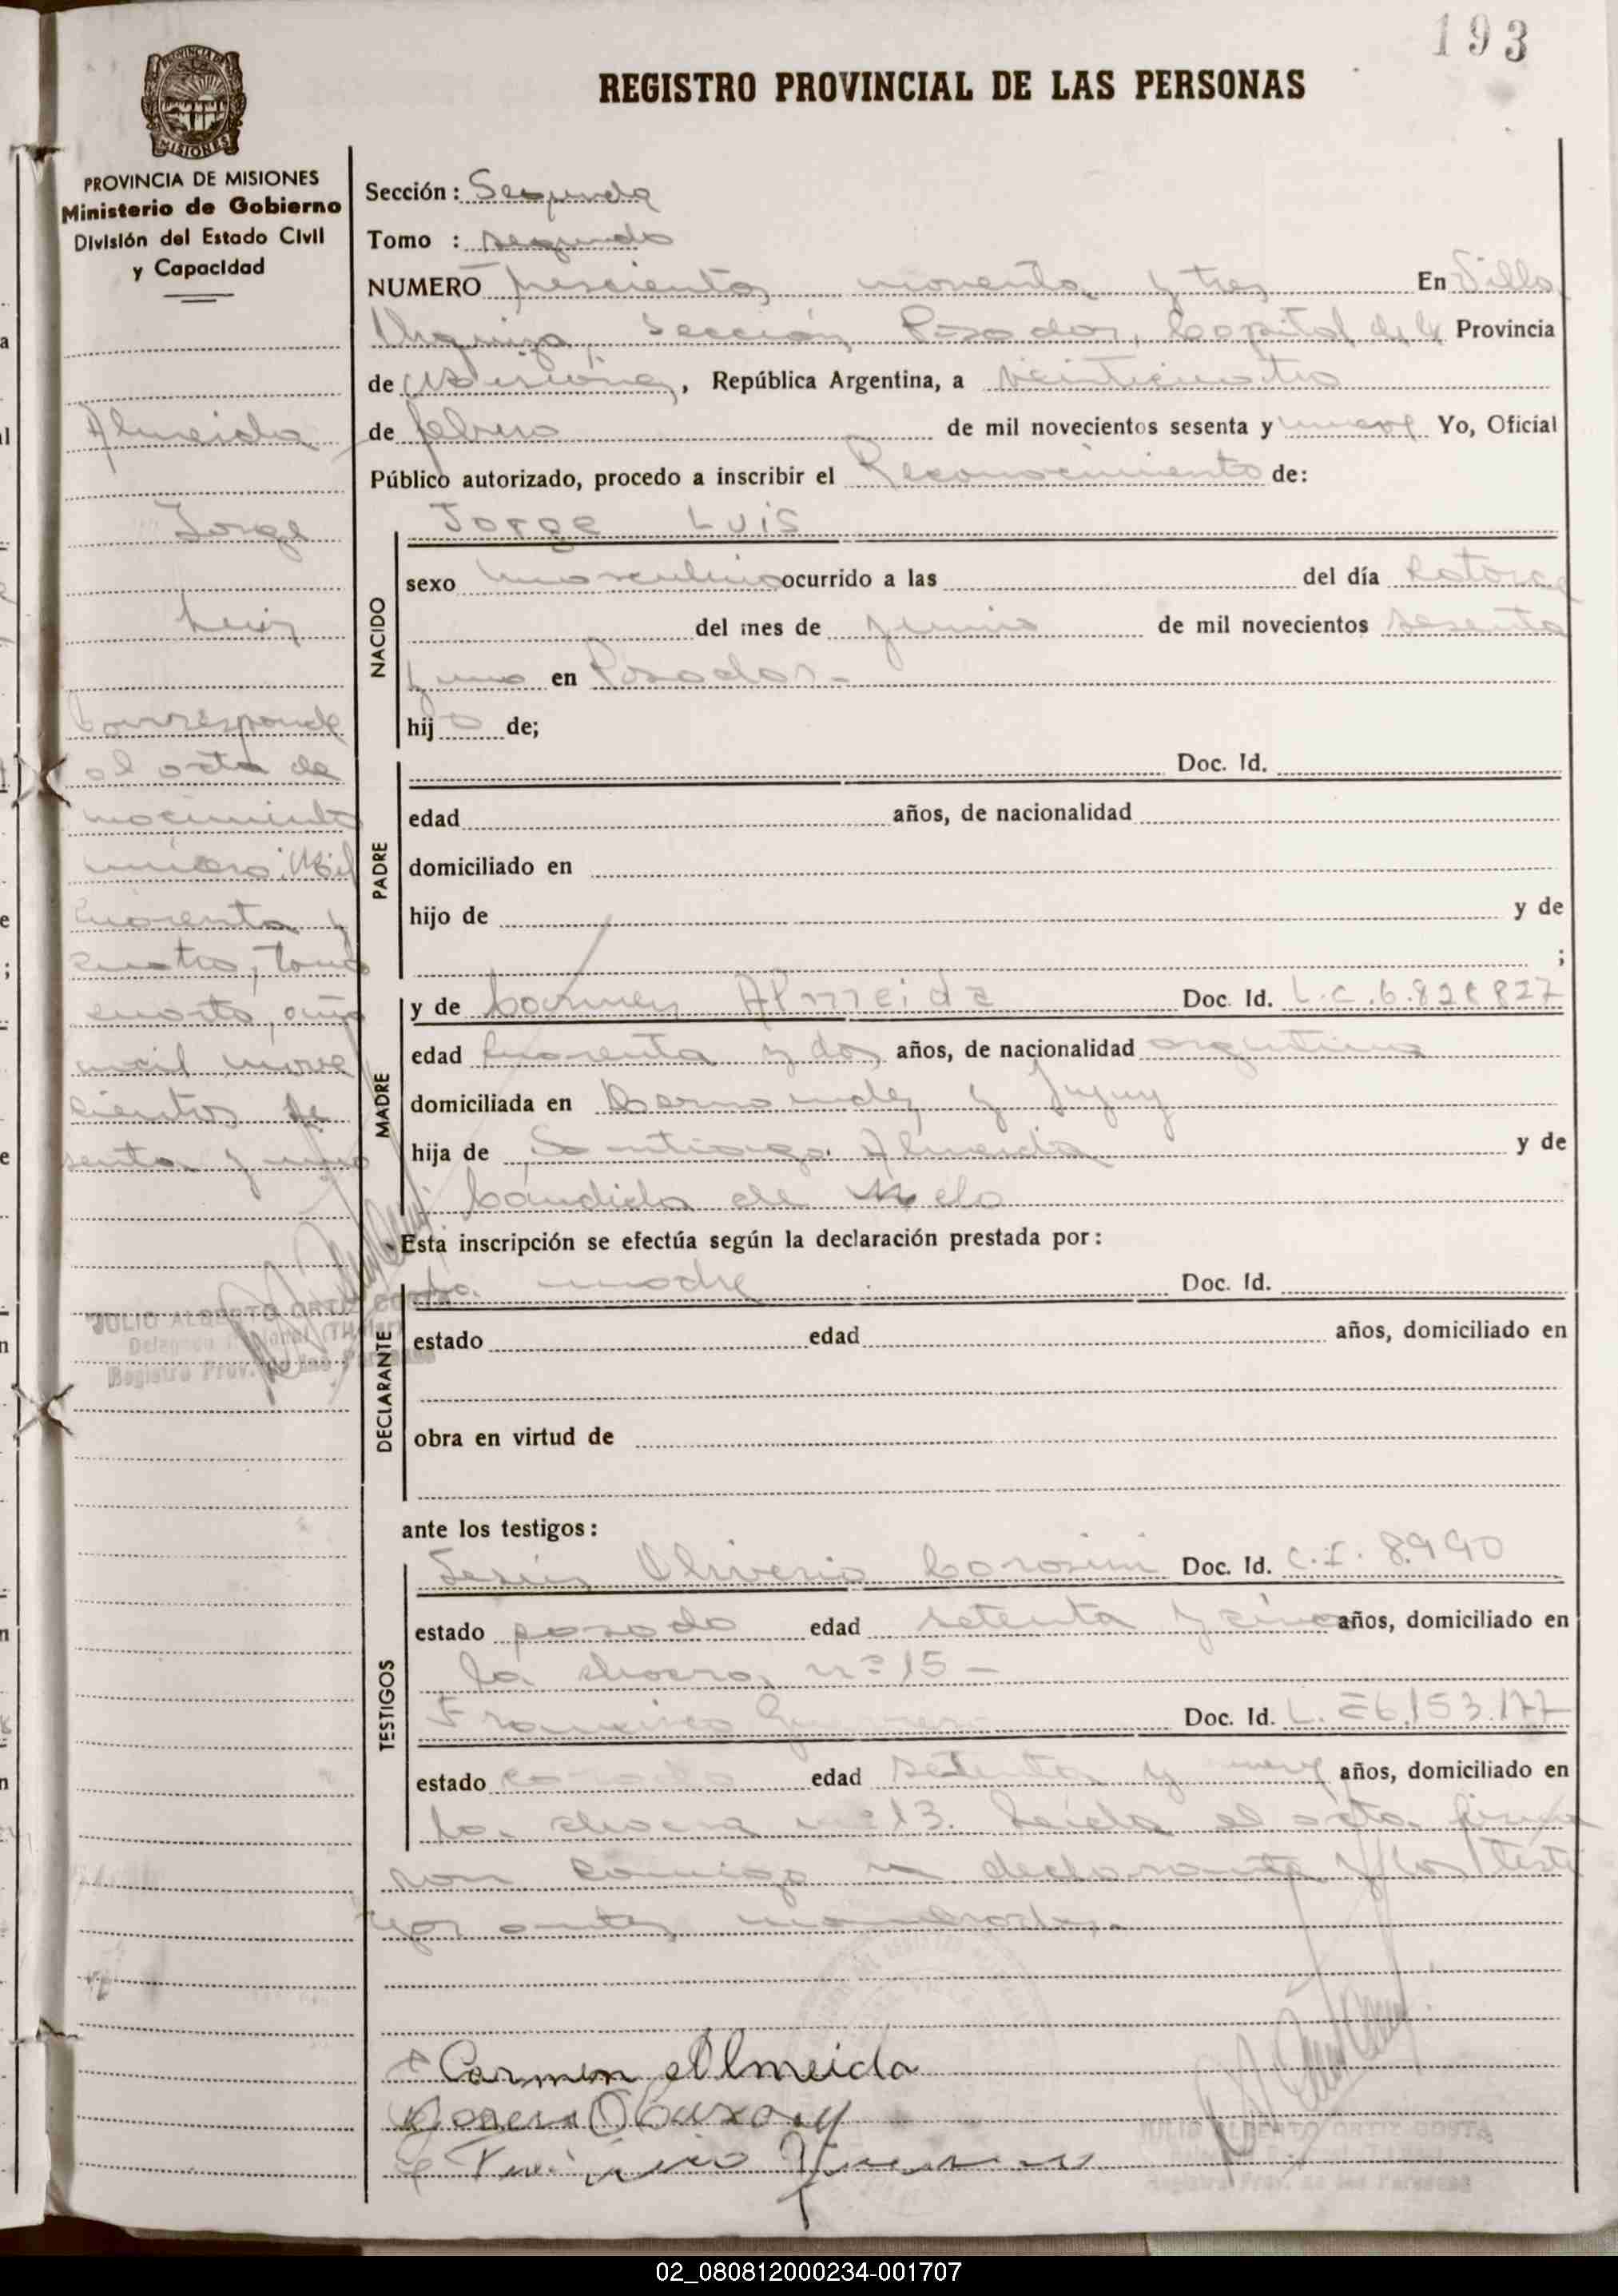 193
REGISTRO PROVINCIAL DE LAS PERSONAS
PROVINCIA DE MISIONES
MISIONES
PROVINCIA DE MISIONES
Ministerio de Gobierno
División del Estado Civil
y Capacidad
Almeida
Jorge
Luis
Corresponde
al acta de
nacimiento
número: Mil
cuarenta y
cuatro, tomo
cuarto, año
mil nove
cientos se
senta y uno
JULIO ALBERTO ORTIZ COSTA
Delegado (Titular)
Registro Prov. de las Personas
Sección: Segunda
Tomo : segundo
NUMERO trescientos noventa y tres En Villa
Urquiza, Sección Posadas, Capital de la Provincia
de Misiones, República Argentina, a veinticuatro
de febrero de mil novecientos sesenta y nueve Yo, Oficial
Público autorizado, procedo a inscribir el Reconocimiento de:
NACIDO
Jorge Luis
sexo masculino ocurrido a las del día catorce
del mes de junio de mil novecientos sesenta
y uno en Posadas-
hijo de;
PADRE
Doc. Id.
edad años, de nacionalidad
domiciliado en
hijo de y de
;
MADRE
y de Carmen Almeida Doc. Id. L.C. 6.828827
edad cuarenta y dos años, de nacionalidad argentina
domiciliada en Bermudez y Jujuy
hija de Santiago Almeida y de
Cándida de Melo
Esta inscripción se efectúa según la declaración prestada por:
DECLARANTE
la madre Doc. Id.
estado edad años, domiciliado en
obra en virtud de
ante los testigos:
TESTIGOS
Jesús Oliverio Doc. Id. C.I. 8.990
estado casado edad setenta y cinco años, domiciliado en
la chacra nº 15-
Francisco Doc. Id. L.E 6.153.177
estado casado edad setenta y nueve años, domiciliado en
la chacra nº 13. Leída el acta firma
ron conmigo la declarante y los testi
gos antes nombrados.
Carmen Almeida
JULIO ALBERTO ORTIZ COSTA
Registro Prov. de las Personas
02_080812000234-001707